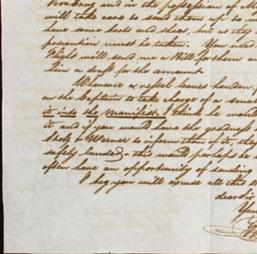 Broadway and in the possession of M
will take care to send them up to
have some boots and shoes, but as they
precaution must be taken. You need
Wright will send me a Bill for them a
him a draft for the amount.
Whenever a vessel leaves London f
on the Captain to take charge of a small
it into the Manifest. I think he would
it and if you would have the goodness
& Warner to inform them of it, they
safely landed — this would perhaps be
often have an opportunity of sending
I beg you will excuse all this
dear Sir